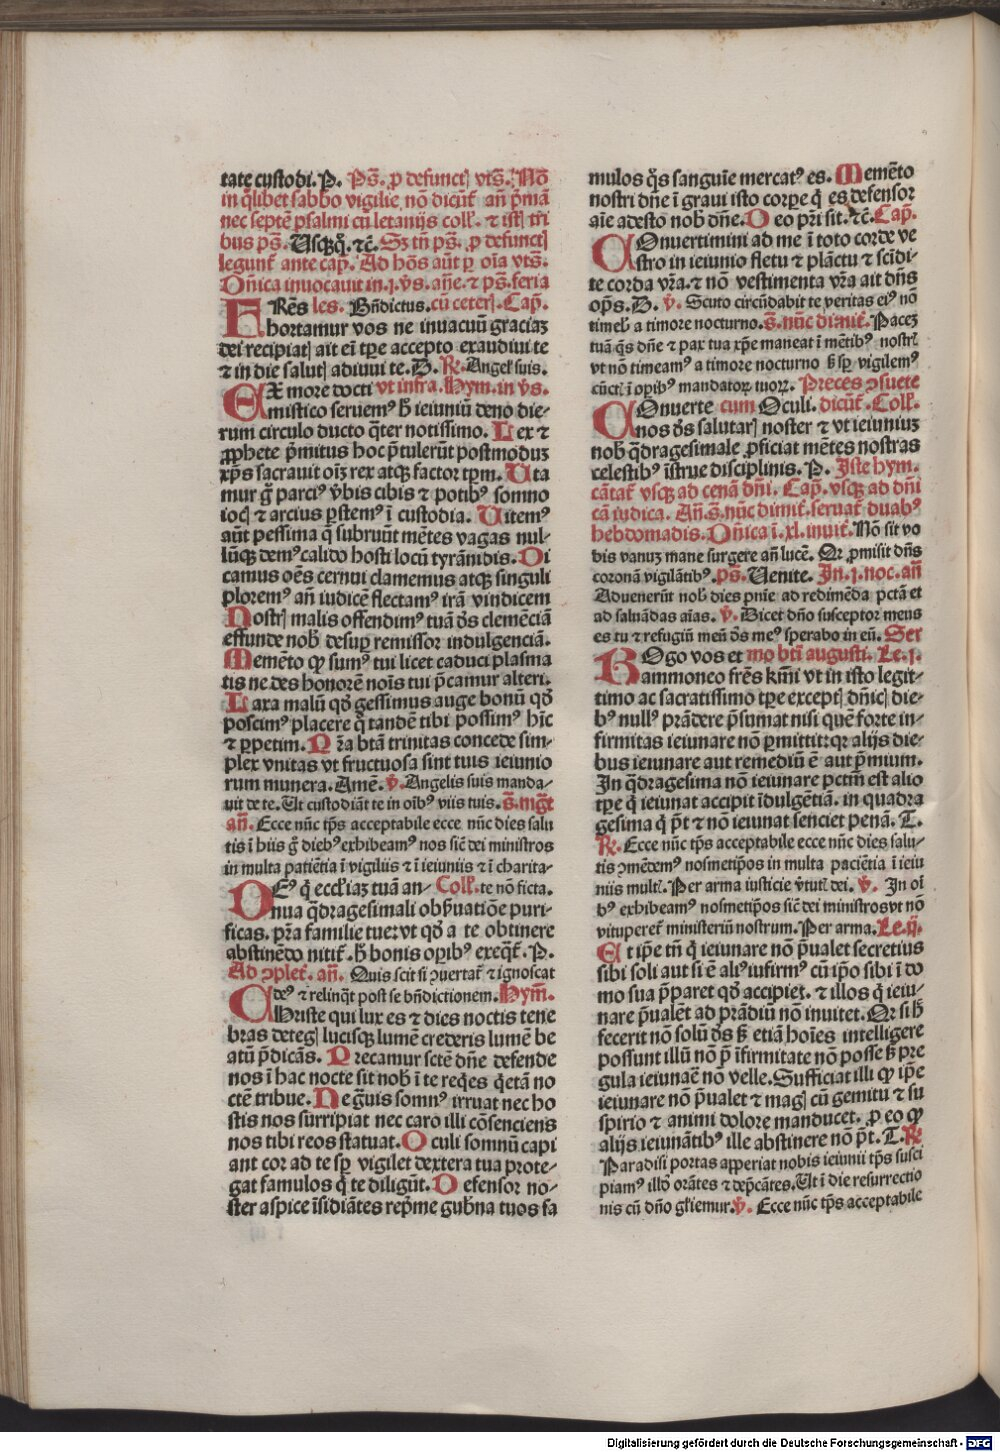 tate custodi. P. Ps̄. ꝓ defunctꝭ vts̄. Nō
in q̄libet sabbo vigilie nō dicūt᷑ añ pʼmā
nec septē psalmi cū letanijs coll᷑. ⁊ istꝭ tri
bus ps̄. Usqꝫq̄. ⁊c̄. Sꝫ tñ ps̄. ꝓ defunctꝭ
legunt᷑ ante cap̄. Ad hōs aūt ꝑ oīa vts̄.
Oñica inuocauit in .j. vs̄. añe. ⁊ ps̄. feria
FRēs les. Bñdictus. cū ceterꝭ. Cap̄.
hortamur vos ne inuacuū graciaꝫ
dei recipiatꝭ ait eī tꝑe accepto exaudiui te
⁊ in die salutꝭ adiuui te. D. R̄. Angel᷑ suis.
EX more docti vt infra. Hym. in v̄s.
mistico seruemꝰ h̄ ieiuniū deno die-
rum circulo ducto q̄ter notissimo. Lex ⁊
ꝓphete pʼmitus hoc p̄tulerūt postmoduꝫ
xp̄s sacrauit oīꝫ rex atqꝫ factor tꝑm. Uta
mur g̊ parciꝰ v̄bis cibis ⁊ potibꝰ somno
iocꝭ ⁊ arcius ꝑstemꝰ ī custodia. Uitemꝰ
aūt pessima q̄ subruūt mētes vagas nul-
lūqꝫ demꝰ calido hosti locū tyrānidis. Di
camus oēs cernui clamemus atqꝫ singuli
ploremꝰ añ iudicē flectamꝰ irā vindicem
Nostrꝭ malis offendimꝰ tuā d̄s clemēciā
effunde nob̄ desuꝑ remissor indulgenciā.
Memēto ꝙ sumꝰ tui licet caduci plasma
tis ne des honorē noīs tui p̄camur alteri.
Laxa malū qd̄ gessimus auge bonū qd̄
poscimꝰ placere q̊ tandē tibi possimꝰ hīc
⁊ ꝑpetim. P r̄a btā trinitas concede sim-
plex vnitas vt fructuosa sint tuis ieiunio
rum munera. Amē. v̄. Angelis suis manda-
uit de te. Ut custodiāt te in oībꝰ viis tuis. s̄. mg̅t
añ. Ecce nūc tp̄s acceptabile ecce nūc dies salu
tis ī hiis g̊ diebꝰ exhibeamꝰ nos sic̄ dei ministros
in multa patiētia ī vigiliis ⁊ ī ieiuniis ⁊ ī charita-
DEꝰ q̄ eccl᷑iaꝫ tuā an- Coll᷑. te nō ficta.
nua q̄dragesimali obp̄uatiōe puri-
ficas. pr̄a familie tue vt qd̄ a te obtinere
abstinēdo nitit᷑. h̄ bonis oꝑibꝰ exeqt᷑. P.
Ad ꝯplet᷑. añ. Quis scit si ꝯuertat᷑ ⁊ ignoscat
deꝰ ⁊ relinq̄t post se bñdictionem. Hym̄.
CHriste qui lux es ⁊ dies noctis tene
bras detegꝭ lucisqꝫ lumē crederis lumē be
atū p̄dicās. Precamur sctē dñe defende
nos ī hac nocte sit nob̄ ī te reqͥes qͥetā no
ctē tribue. Ne g̊uis somnꝰ irruat nec ho
stis nos surripiat nec caro illi cōsenciens
nos tibi reos statuat. Oculi somnū capi
ant cor ad te sꝑ vigilet dextera tua prote-
gat famulos q̄ te diligūt. Defensor no-
ster aspice īsidiātes rep̄me gub̄na tuos fa
mulos q̊s sanguīe mercatꝰ es. Memēto
nostri dñe ī graui isto corꝑe q̄ es defensor
aīe adesto nob̄ dñe. Deo pr̄i sit. ⁊c̄. Cap̄.
COnuertimini ad me ī toto corde ve
stro in ieiunio fletu ⁊ plāctu ⁊ scīdi-
te corda vr̄a. ⁊ nō vestimenta vr̄a ait dñs
op̄s. D. v̄. Scuto circūdabit te veritas eiꝰ nō
timeb᷑ a timore nocturno. s̄. nūc dimit᷑. Paceꝫ
tuā q̄s dñe ⁊ pax tua xp̄e maneat ī mētibꝰ nostrꝭ
vt nō timeamꝰ a timore nocturno sꝫ sꝑ vigilemꝰ
cūctꝭ ī oꝑibꝰ mandatoꝝ tuoꝝ. Preces ꝯsuete
COnuerte cum Oculi. dicūt᷑. Coll᷑.
nos d̄s salutarꝭ noster ⁊ vt ieiuniuꝫ
nob̄ q̄dragesimale ꝓficiat mētes nostras
celestibꝰ īstrue disciplinis. P. Iste hym.
cātat᷑ vsqꝫ ad cenā dñi. Cap̄. vsqꝫ ad dñi
cā iudica. Añ. s̄. nūc dimit᷑. seruat᷑ duabꝰ
hebdomadis. Oñica ī. xl. inuit᷑. Nō sit vo
bis vanuꝫ mane surgere añ lucē. Qr ꝓmisit dñs
coronā vigilātibꝰ. ps̄. Uenite. In .j. noc. añ
Aduenerūt nob̄ dies pnīe ad redimēda pctā et
ad saluādas aīas. v̄. Dicet dño susceptor meus
es tu ⁊ refugiū meū d̄s meꝰ sperabo in eū. Ser
ROgo vos et mo btī augusti. Le. j.
ammoneo frēs kmī vt in isto legit-
timo ac sacratissimo tꝑe exceptꝭ dñicꝭ die-
bꝰ nullꝰ prādere p̄sumat nisi quē forte in-
firmitas ieiunare nō ꝑmittit: qꝛ alijs die-
bus ieiunare aut remediū ē aut p̄mium.
In q̄dragesima nō ieiunare pctm̄ est alio
tꝑe q̄ ieiunat accipit īdulgētiā. in quadra
gesima q̄ p̄t ⁊ nō ieiunat senciet penā. T.
R̄. Ecce nūc tp̄s acceptabile ecce nūc dies salu-
tis ꝯmēdemꝰ nosmetip̄os in multa paciētia ī ieiu
niis multꝭ. Per arma iusticie v̄tutꝭ dei. v̄. In oī
bꝰ exhibeamꝰ nosmetip̄os sic̄ dei ministros vt nō
vituperet᷑ ministeriū nostrum. Per arma. Le. ij.
Et ip̄e tñ q̄ ieiunare nō p̄ualet secretius
sibi soli aut si ē aliꝰ infirmꝰ cū ip̄o sibi ī do
mo sua p̄paret qd̄ accipiet. ⁊ illos q̄ ieiu-
nare p̄ualēt ad prādiū nō inuitet. Qr si h̄
fecerit nō solū d̄s sꝫ etiā hoīes intelligere
possunt illū nō p̄ īfirmitate nō posse sꝫ pre
gula ieiunaē nō velle. Sufficiat illi ꝙ ip̄e
ieiunare nō p̄ualet ⁊ magꝭ cū gemitu ⁊ su
spirio ⁊ animi dolore manducet. ꝓ eo ꝙ
alijs ieiunātibꝰ ille abstinere nō p̄t. T. R̄
Paradisi portas aꝑperiat nobis ieiunii tp̄s susci
piamꝰ illd̄ orātes ⁊ dep̄cātes. Ut ī die resurrectio
nis cū dño gl᷑iemur. v̄. Ecce nūc tp̄s acceptabile
Digitalisierung gefördert durch die Deutsche Forschungsgemeinschaft - DFG